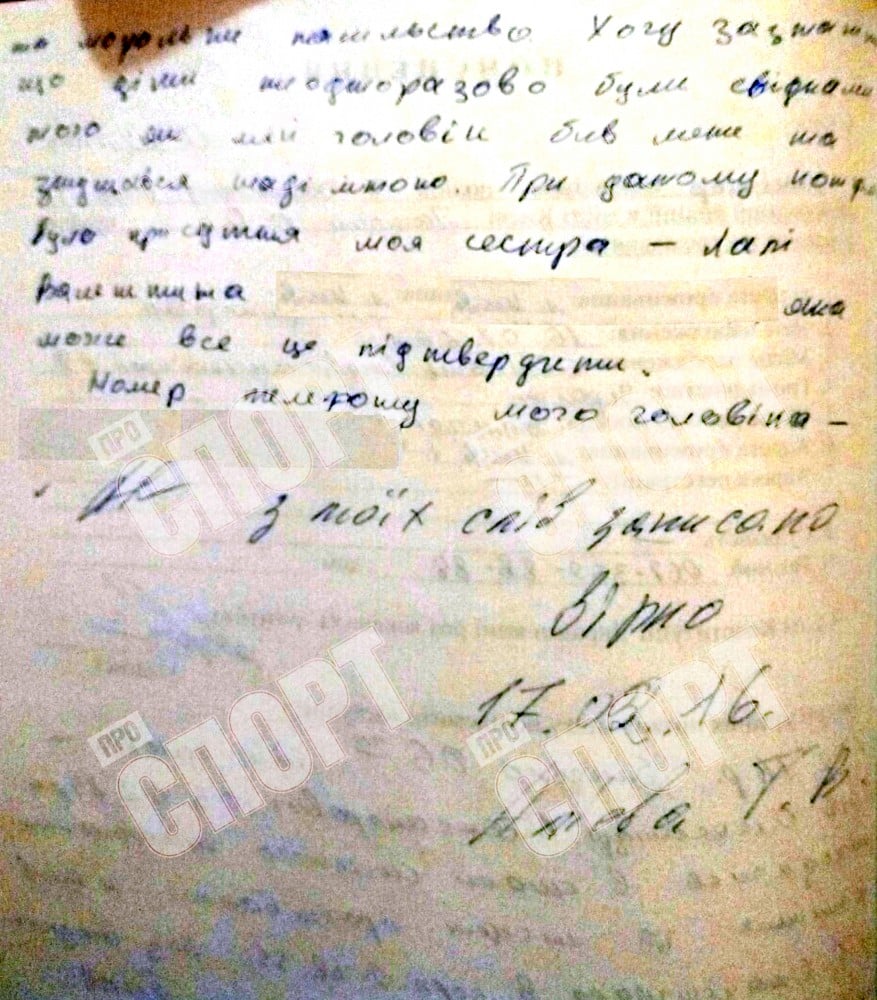 та моральне насильство. Хочу зазначити
що діти неодноразово були свідками
того як мій чоловік бив мене та
знущався наді мною. При даному
було присутня моя сестра – Лапі
Валентина яка
може все це підтвердити.
Номер телефону мого чоловіка –
З моїх слів записано
вірно
17.06.16.
Т. В.
ПРО СПОРТ
ПРО СПОРТ
ПРО СПОРТ
ПРО СПОРТ